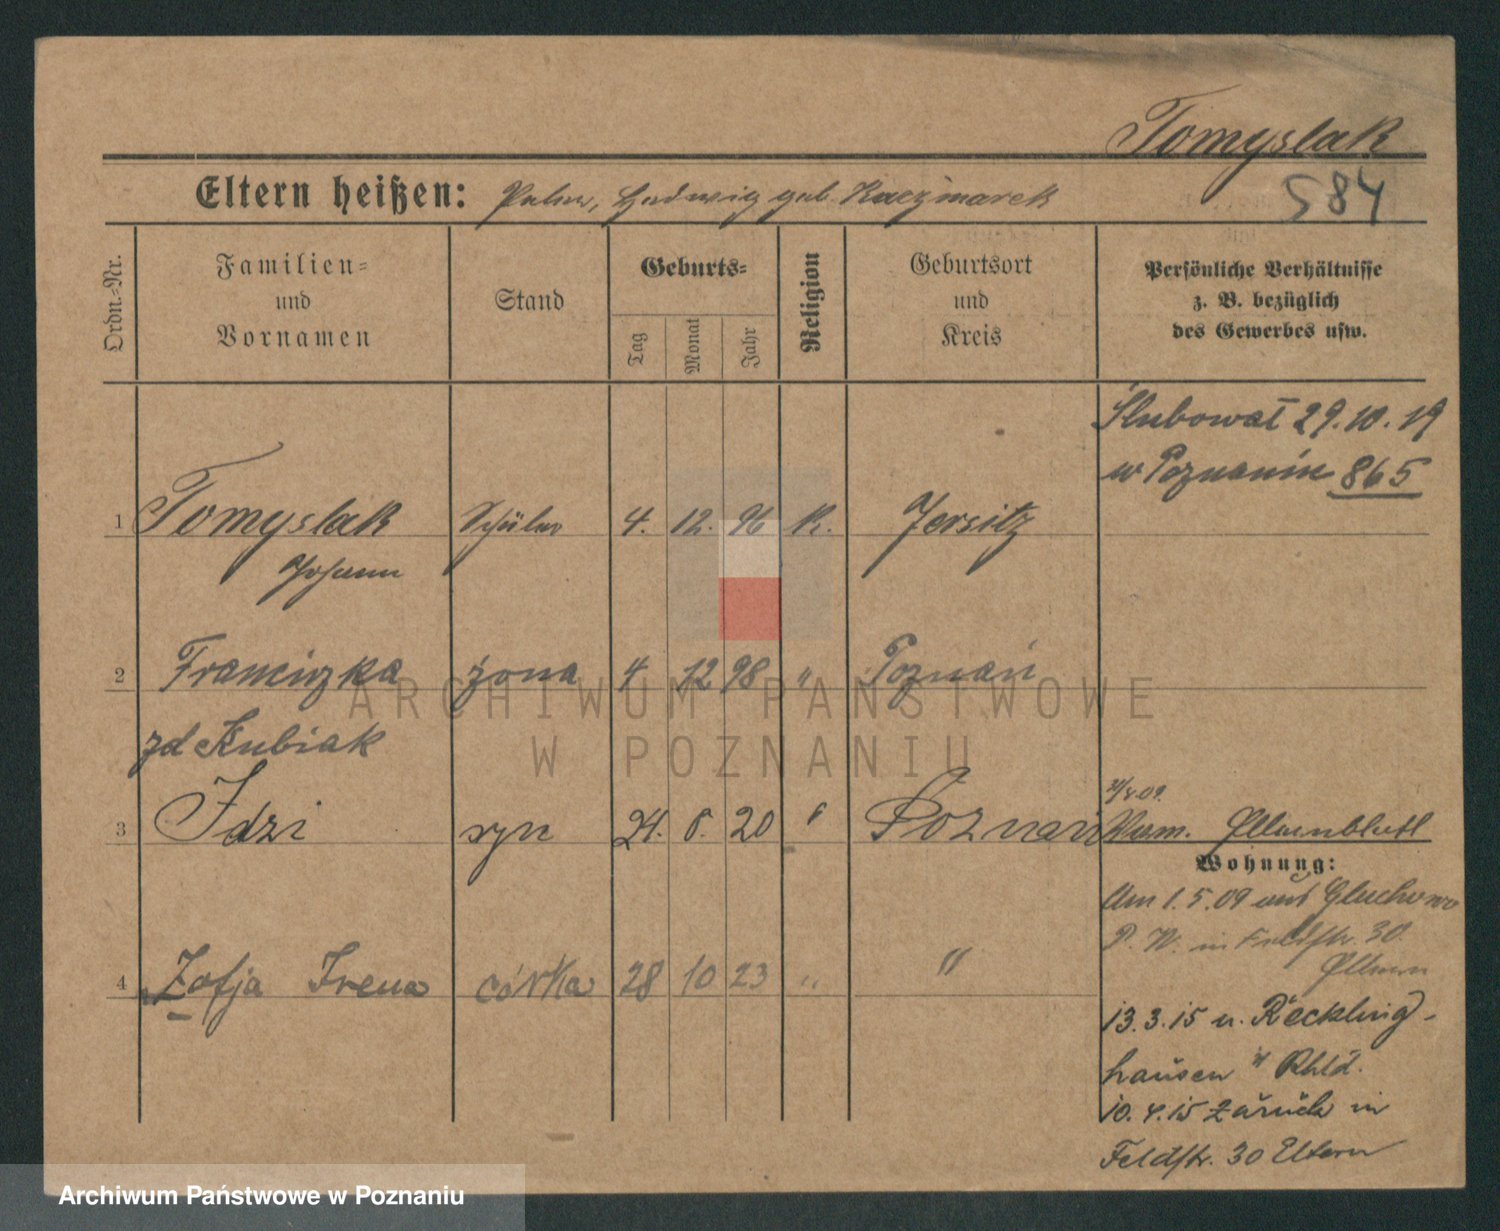 Tomyslak
Eltern heißen: Peter, Hedwig geb. Kaczmarek
584
Ordn.-Nr.
Familien-
und
Vornamen
Stand
Geburts-
Tag
Monat
Jahr
Religion
Geburtsort
und
Kreis
Persönliche Verhältnisse
z. B. bezüglich
des Gewerbes usw.
Ślubował 29.10.19
w Poznaniu 865
1 Tomyslak Schüler 4. 12. 96 K. Jersitz
Johann
2 Franciszka żona 4 12 98 " Poznań
zd Kubiak
3 Idzi syn 24. 8. 20 " Poznań
Elternblatt
Wohnung:
Am 1.5.09 aus Gluchowo
P. W. in Feldstr. 30
Eltern
4 Zofja Irena córka 28 10 23 " "
13.3.15 n. Reckling-
hausen i/ Rhld.
10.4.15 zurück in
Feldstr. 30 Eltern
ARCHIWUM PAŃSTWOWE
W POZNANIU
Archiwum Państwowe w Poznaniu